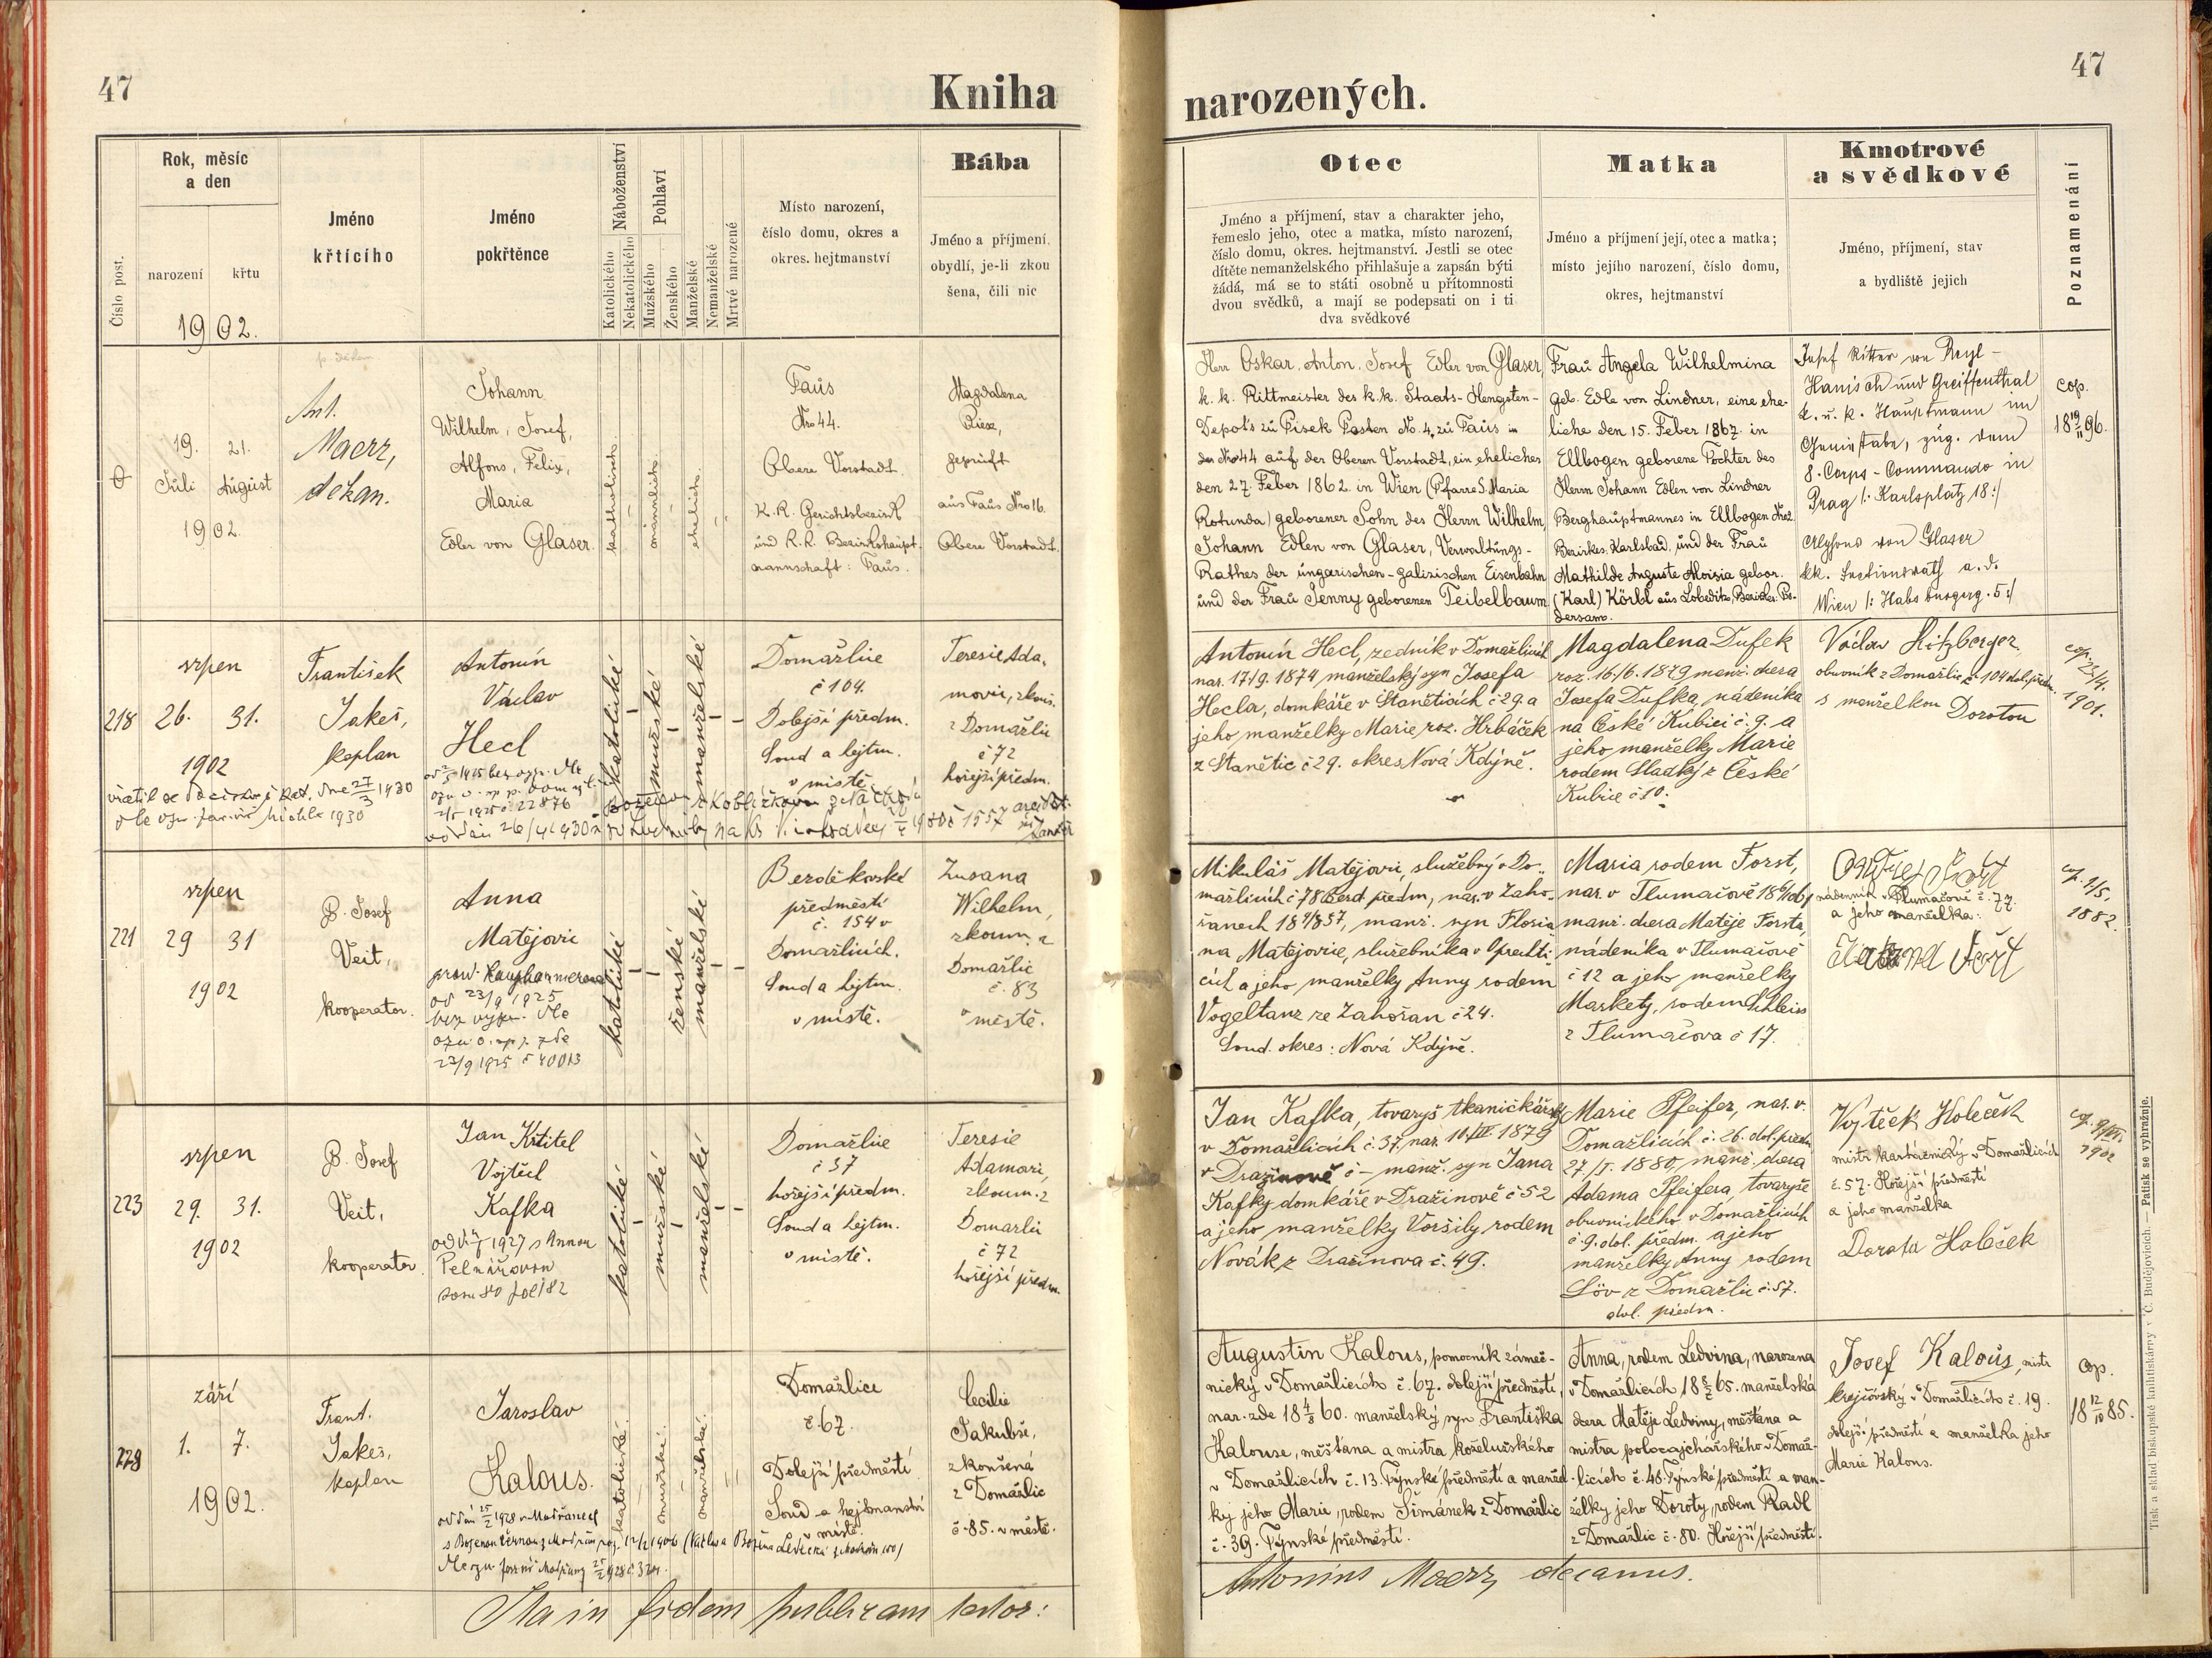 47
Kniha
Číslo post.
Rok, měsíc
a den
narození
křtu
1902.
Jméno
křtícího
Jméno
pokřtěnce
Náboženství
Katolického
Nekatolického
Pohlaví
Mužského
Ženského
Manželské
Nemanželské
Mrtvé narozené
Místo narození,
číslo domu, okres a
okres. hejtmanství
Bába
Jméno a příjmení,
obydlí, je-li zkou
šena, čili nic
19. 21.
Juli August
1902.
Ant.
Maerz,
děkan.
Johann
Wilhelm, Josef,
Alfons, Felix,
Maria
Edler von Glaser.
katholisch
männlich
ehelich
Taus
Nro 44.
Obere Vorstadt
K.K. Gerichtsbezirk
und K.K. Bezirkshaupt-
mannschaft: Taus.
Magdalena
geprüft
aus Taus Nro 16.
Obere Vorstadt.
218
srpen
26. 31.
1902
František
Jakeš,
kaplan
Antonín
Václav
Hecl
katolické
mužské
manželské
Domažlice
č 104.
Dolejší předm.
Soud a hejtm.
v místě.
Teresie Ada-
movic, zkouš.
z Domažlic
č 72
hořejší předm.
221
srpen
29 31
1902
P. Josef
Veit,
kooperator.
Anna
Matějovic
23/9 1925 č 40013
katolické
ženské
manželské
předměstí
č. 154 v
Domažlicích.
Soud a hejtm.
v místě.
Zusana
Wilhelm,
zkoum. z
Domažlic
č. 83
v městě.
223
srpen
29. 31.
1902
P. Josef
Veit,
kooperator.
Jan Křtitel
Vojtěch
Kafka
1927 s Annou
Pelnářovou
katolické
mužské
manželské
Domažlice
č 37
hořejší předm.
Soud a hejtm.
v místě.
Teresie
Adamovic,
zkoum. z
Domažlic
č 72
hořejší předm.
228
září
1. 7.
1902.
Frant.
Jakeš,
kaplan
Jaroslav
Kalous.
katolické
mužské
manželské
Domažlice
č. 67.
Dolejší předměstí
Soud a hejtmanství
v místě.
Cecilie
Jakubše,
zkoušená
z Domažlic
č. 85. v městě.
Ita in fidem publicam testor:
47
narozených.
Otec
Jméno a příjmení, stav a charakter jeho,
řemeslo jeho, otec a matka, místo narození,
číslo domu, okres. hejtmanství. Jestli se otec
dítěte nemanželského přihlašuje a zapsán býti
žádá, má se to státi osobně u přítomnosti
dvou svědků, a mají se podepsati on i ti
dva svědkové
Matka
Jméno a příjmení její, otec a matka;
místo jejího narození, číslo domu,
okres, hejtmanství
Kmotrové
a svědkové
Jméno, příjmení, stav
a bydliště jejich
Poznamenání
Herr Oskar, Anton, Josef Edler von Glaser,
k. k. Rittmeister des k.k. Staats-Hengsten-
Depot's zu Pisek Posten No. 4, zu Taus in
der Nro 44 auf der Oberen Vorstadt, ein eheliches
den 27. Feber 1862. in Wien (Pfarre S. Maria
Rotunda) geborener Sohn des Herrn Wilhelm,
Johann Edlen von Glaser, Verwaltungs-
Rathes der ungarischen-galizischen Eisenbahn
und der Frau Jenny geborenen Teibelbaum.
Frau Angela Wilhelmina
geb. Edle von Lindner, eine ehe-
liche den 15. Feber 1867. in
Ellbogen geborene Tochter des
Herrn Johann Edlen von Lindner
Berghauptmannes in Ellbogen Nro 2.
Bezirkes Karlsbad, und der Frau
Mathilde Auguste Aloisia gebor.
(Karl) Körbl aus Lobeditz, Bezirkes Po-
dersam.
Josef Ritter von
Hanisch und Greiffenthal
k. u. k. Hauptmann im
Generalstabe, zug. dem
8. Corps-Commando in
Prag /: Karlsplatz 18:/
Alfons von Glaser
kk. Sectionsrath a.d.
Wien /: Habsburgerg. 5:/
cop.
18 19/11 96.
Antonín Hecl, zedník v Domažlicích
nar. 17/9. 1874 manželský syn Josefa
Hecla, domkáře v Staněticích č 29. a
jeho manželky Marie roz. Hrbáček
z Stanětic č 29. okres Nová Kdýně.
Magdalena Dufek
roz. 16./6. 1879 manž. dcera
Josefa Dufka, nádeníka
na České Kubici č. 9. a
jeho manželky Marie
rodem Sladký z České
Kubice č 10.
Václav Hitzberger
obuvník z Domažlic č. 104 dol. předm.
s manželkou Dorotou
cop. 23/4.
1901.
Mikuláš Matějovic, služebný v Do-
mažlicích č 78 Berd. předm, nar. v Zaho-
řanech 18 57, manž. syn Floria
na Matějovice, služebníka v
cích a jeho manželky Anny rodem
Vogeltanz ze Zahořan č 24.
Soud. okres: Nová Kdýně.
Maria rodem Forst,
nar. v Tlumačově
manž. dcera Matěje Forsta,
nádeníka v Tlumačově
č 12 a jeho manželky
Markety, rodem Schleiss
z Tlumačova č 17.
nádenník v Tlumačově č. 77.
a jeho manželka:
cop. 1/5,
1882.
Jan Kafka, tovaryš tkaničkářský
v Domažlicích č. 37, nar. 11./IV. 1879
v Dražinově č – manž. syn Jana
Kafky domkáře v Dražinově č 52
a jeho manželky Voršily rodem
Novák z Dražinova č. 49.
Marie Pfeifer, nar. v.
Domažlicích č. 26. dol. předm.
27/I. 1880, manž. dcera
Adama Pfeifera, tovaryše
obuvnického v Domažlicích
č. 9. dol. předm. a jeho
manželky Anny rodem
Löv z Domažlic č. 57.
dol. předm.
Vojtěch Holeček
mistr kartáčnický v Domažlicích
č. 57. Hořejší předměstí
a jeho manželka
Dorota Holeček
1902
Augustin Kalous, pomocník zámeč-
nický v Domažlicích č. 67. dolejší předměstí,
nar. zde 18 4/8 60. manželský syn Františka
Kalouse, měšťana a mistra koželužského
v Domažlicích č. 13. Týnské předměstí a manžel-
ky jeho Marie, rodem Šimánek z Domažlic
č. 39. Týnské předměstí.
Anna, rodem Ledvina, narozena
v Domažlicích 18 65. manželská
dcera Matěje Ledviny, měšťana a
mistra polocajchářského v Domaž-
licích č. 48. Týnské předměstí a man-
želky jeho Doroty, rodem Radl
z Domažlic č. 80. Hořejší předměstí.
Josef Kalous, mistr
krejčovský v Domažlicích č. 19.
dolejší předměstí a manželka jeho
Marie Kalous.
cop.
18 12/10 85.
Antonius Maerz, decanus.
Tisk a sklad biskupské knihtiskárny v Č. Budějovicích. — Patisk se vyhražuje.